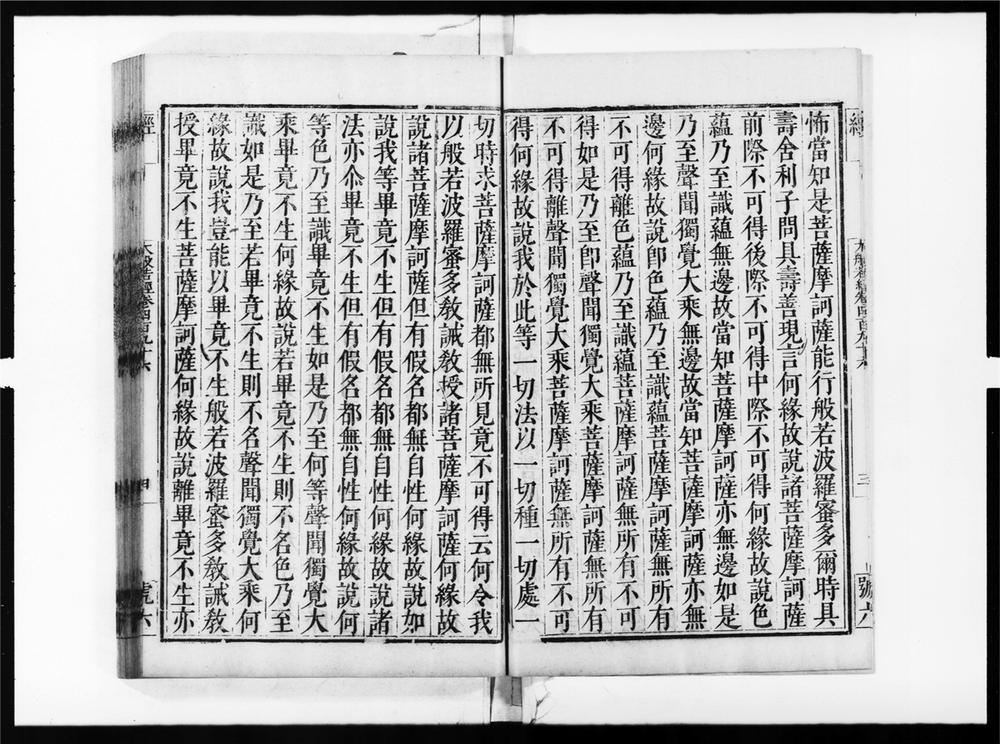 怖當知是菩薩摩訶薩能行般若波羅蜜多爾時具
壽舍利子問具壽善現言何緣故說諸菩薩摩訶薩
前際不可得後際不可得中際不可得何緣故說色
蘊乃至識蘊無邊故當知菩薩摩訶薩亦無邊如是
乃至聲聞獨覺大乘無邊故當知菩薩摩訶薩亦無
邊何緣故說卽色蘊乃至識蘊菩薩摩訶薩無所有
不可得離色蘊乃至識蘊菩薩摩訶薩無所有不可
得如是乃至卽聲聞獨覺大乘菩薩摩訶薩無所有
不可得離聲聞獨覺大乘菩薩摩訶薩無所有不可
得何緣故說我於此等一切法以一切種一切處一
切時求菩薩摩訶薩都無所見竟不可得云何令我
以般若波羅蜜多敎誡敎授諸菩薩摩訶薩何緣故
說諸菩薩摩訶薩但有假名都無自性何緣故說如
說我等畢竟不生但有假名都無自性何緣故說諸
法亦尒畢竟不生但有假名都無自性何緣故說何
等色乃至識畢竟不生如是乃至何等聲聞獨覺大
乘畢竟不生何緣故說若畢竟不生則不名色乃至
識如是乃至若畢竟不生則不名聲聞獨覺大乘何
緣故說我豈能以畢竟不生般若波羅蜜多敎誡敎
授畢竟不生菩薩摩訶薩何緣故說離畢竟不生亦
經
大般若經卷四百九十六
四
號六